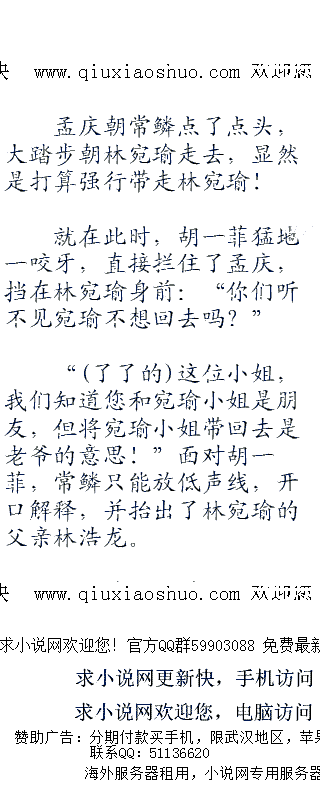 快 www.qiuxiaoshuo.com 欢迎您
孟庆朝常鳞点了点头，
大踏步朝林宛瑜走去，显然
是打算强行带走林宛瑜！
就在此时，胡一菲猛地
一咬牙，直接拦住了孟庆，
挡在林宛瑜身前：“你们听
不见宛瑜不想回去吗？”
“(了了的)这位小姐，
我们知道您和宛瑜小姐是朋
友，但将宛瑜小姐带回去是
老爷的意思！”面对胡一
菲，常鳞只能放低声线，开
口解释，并抬出了林宛瑜的
父亲林浩龙。
快 www.qiuxiaoshuo.com 欢迎您
求小说网欢迎您！官方QQ群59903088 免费最新
求小说网更新快，手机访问
求小说网欢迎您，电脑访问
赞助广告：分期付款买手机，限武汉地区，苹果
联系QQ：51136620
海外服务器租用，小说网专用服务器